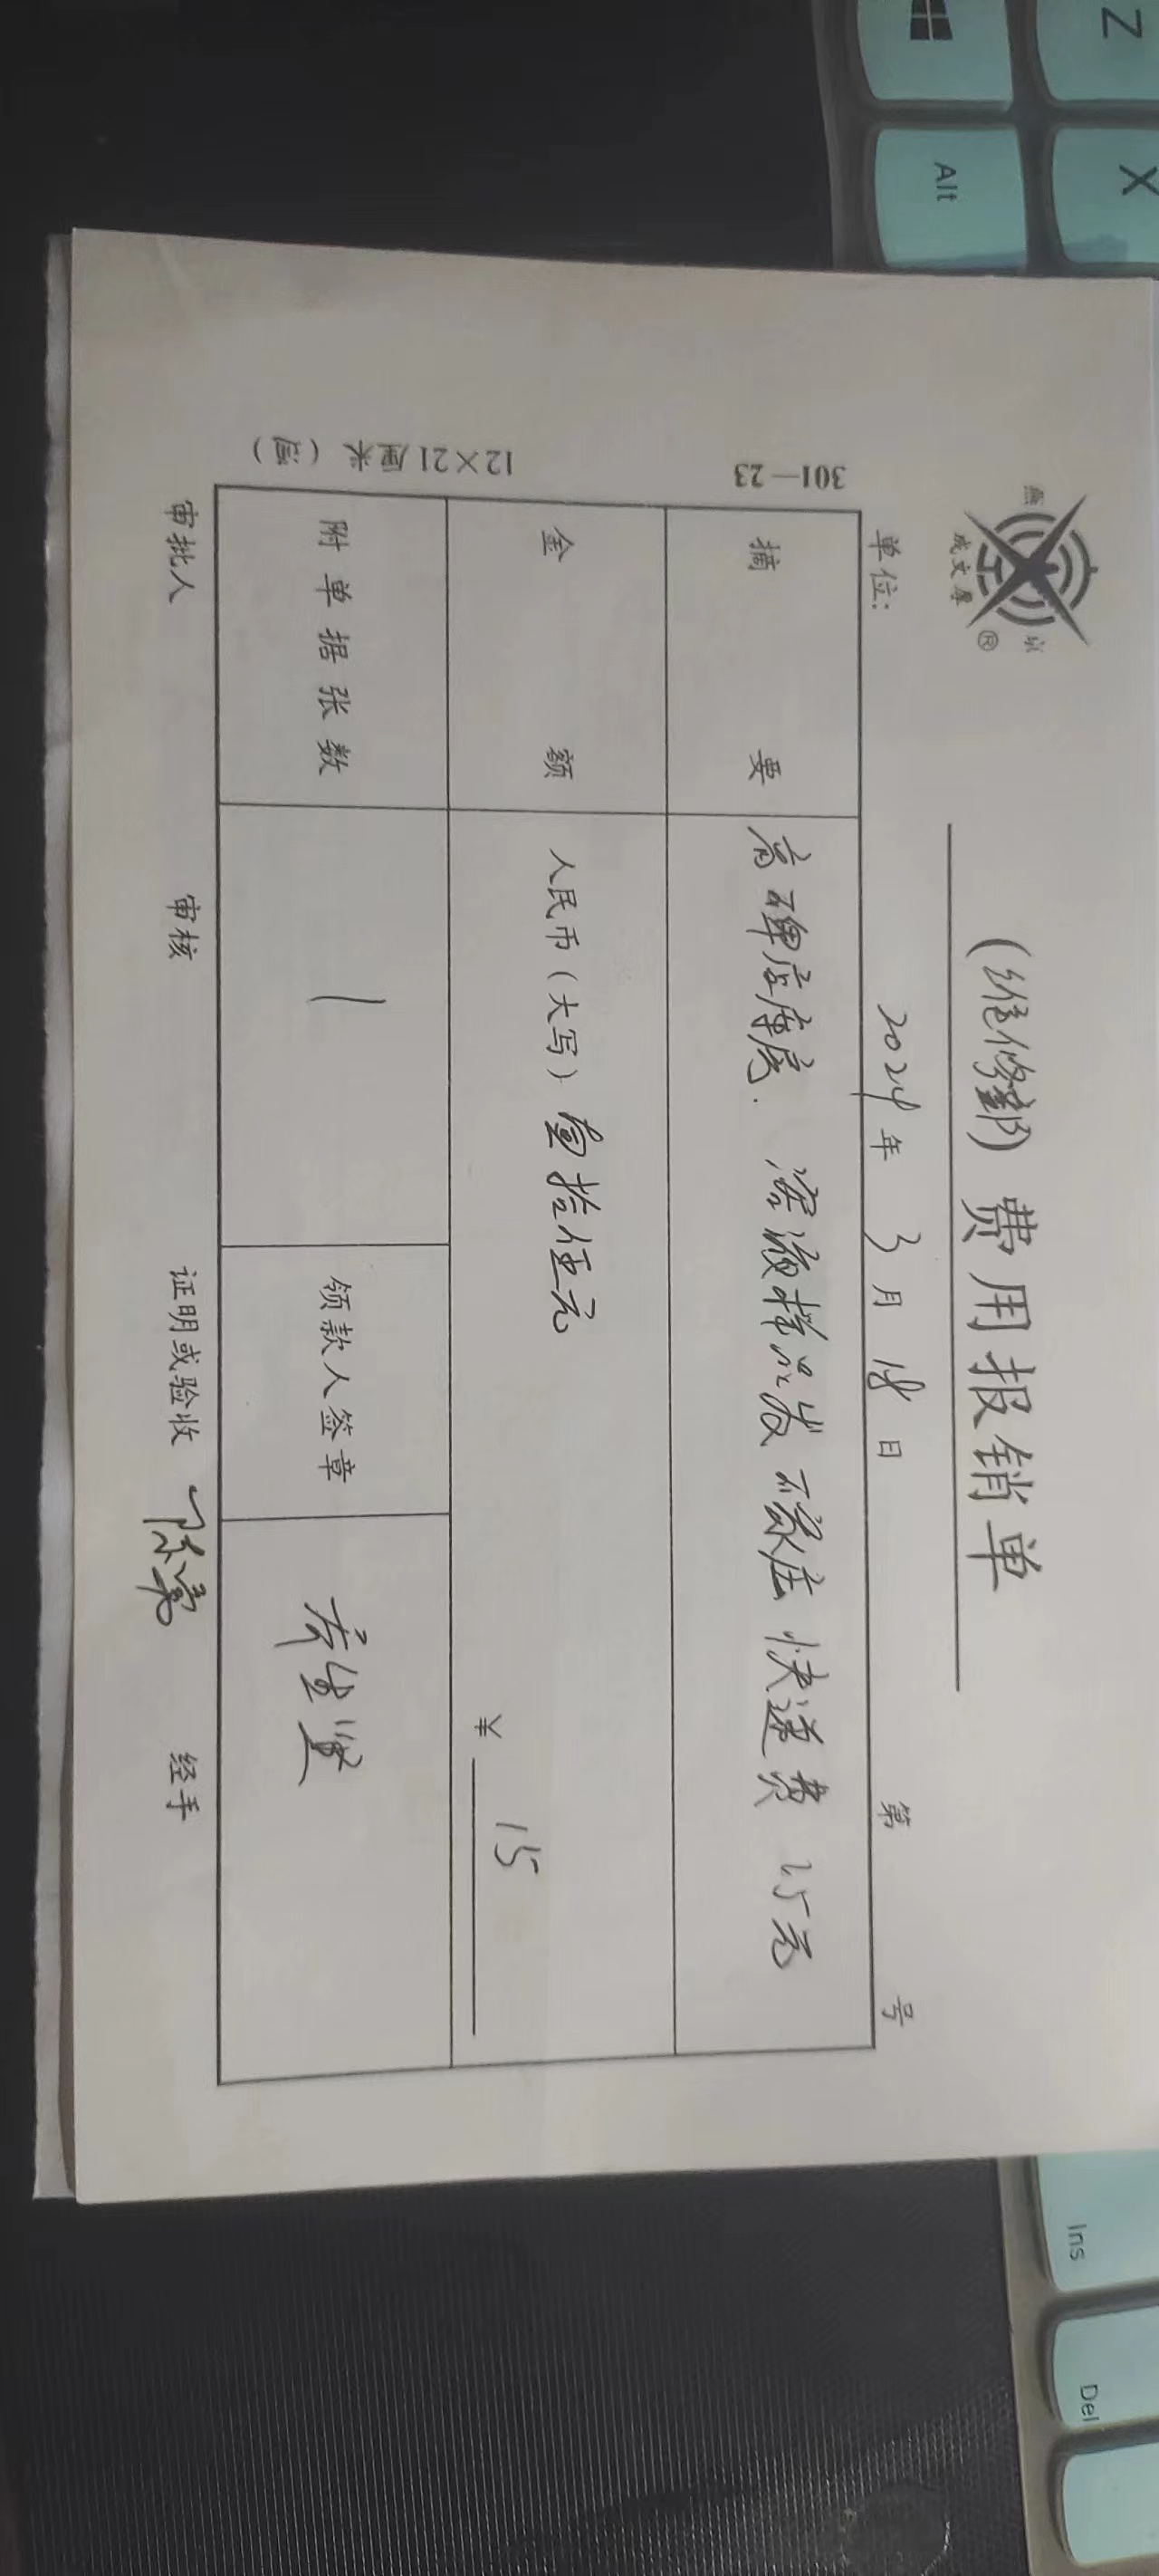 燕京
成文厚®
(维修部) 费用报销单
单位: 2024年3月18日 第 号
301—23
摘要 高碑店库房. 溶液样品发 快递费 15元
金额 人民币(大写) 壹拾伍元
¥ 15
12×21厘米
附单据张数 1 领款人签章
审批人 审核 证明或验收 经手
Z
X
Alt
Ins
Del